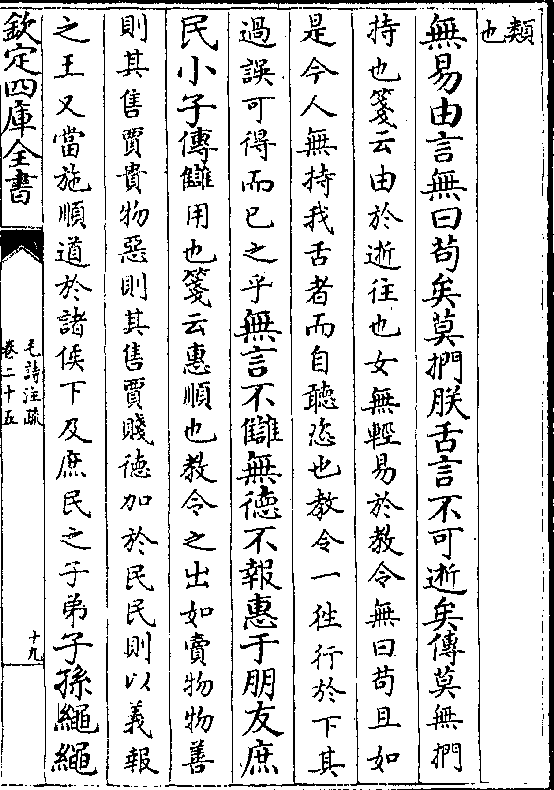 類
也
無易由言無曰苟矣莫捫朕舌言不可逝矣傳莫無捫
持也箋云由於逝往也女無輕易於教令無曰苟且如
是今人無持我舌者而自聽恣也教令一徃行於下其
過誤可得而已之乎無言不讎無德不報惠于朋友庶
民小子傳讎用也箋云惠順也教令之出如賣物物善
則其售賈貴物惡則其售賈賤德加於民民則以義報
之王又當施順道於諸侯下及庶民之子弟子孫繩繩
欽定四庫全書
毛詩注疏
卷二十五
十九